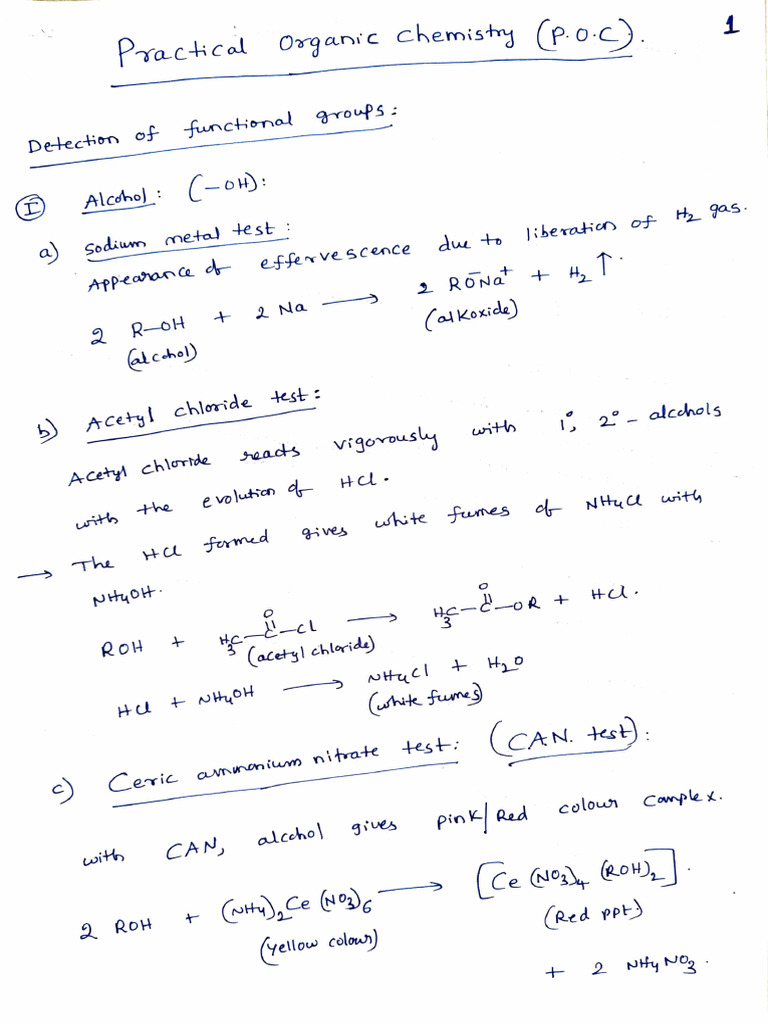 1
Practical Organic Chemistry (P.O.C).
Detection of functional groups:
I Alcohol: (-OH):
a) Sodium metal test:
Appearance of effervescence due to liberation of H2 gas.
2 R-OH + 2 Na → 2 RO⁻Na⁺ + H2 ↑.
(alcohol) (alkoxide)
b) Acetyl chloride test:
Acetyl chloride reacts vigorously with 1°, 2° - alcohols
with the evolution of HCl.
→ The HCl formed gives white fumes of NH4Cl with
NH4OH.
ROH + H3C-C(=O)-Cl → H3C-C(=O)-OR + HCl.
(acetyl chloride)
HCl + NH4OH → NH4Cl + H2O
(white fumes)
c) Ceric ammonium nitrate test: (CAN. test):
with CAN, alcohol gives pink/Red colour complex.
2 ROH + (NH4)2Ce(NO3)6 → [Ce(NO3)4(ROH)2].
(yellow colour) (Red ppt)
+ 2 NH4NO3.